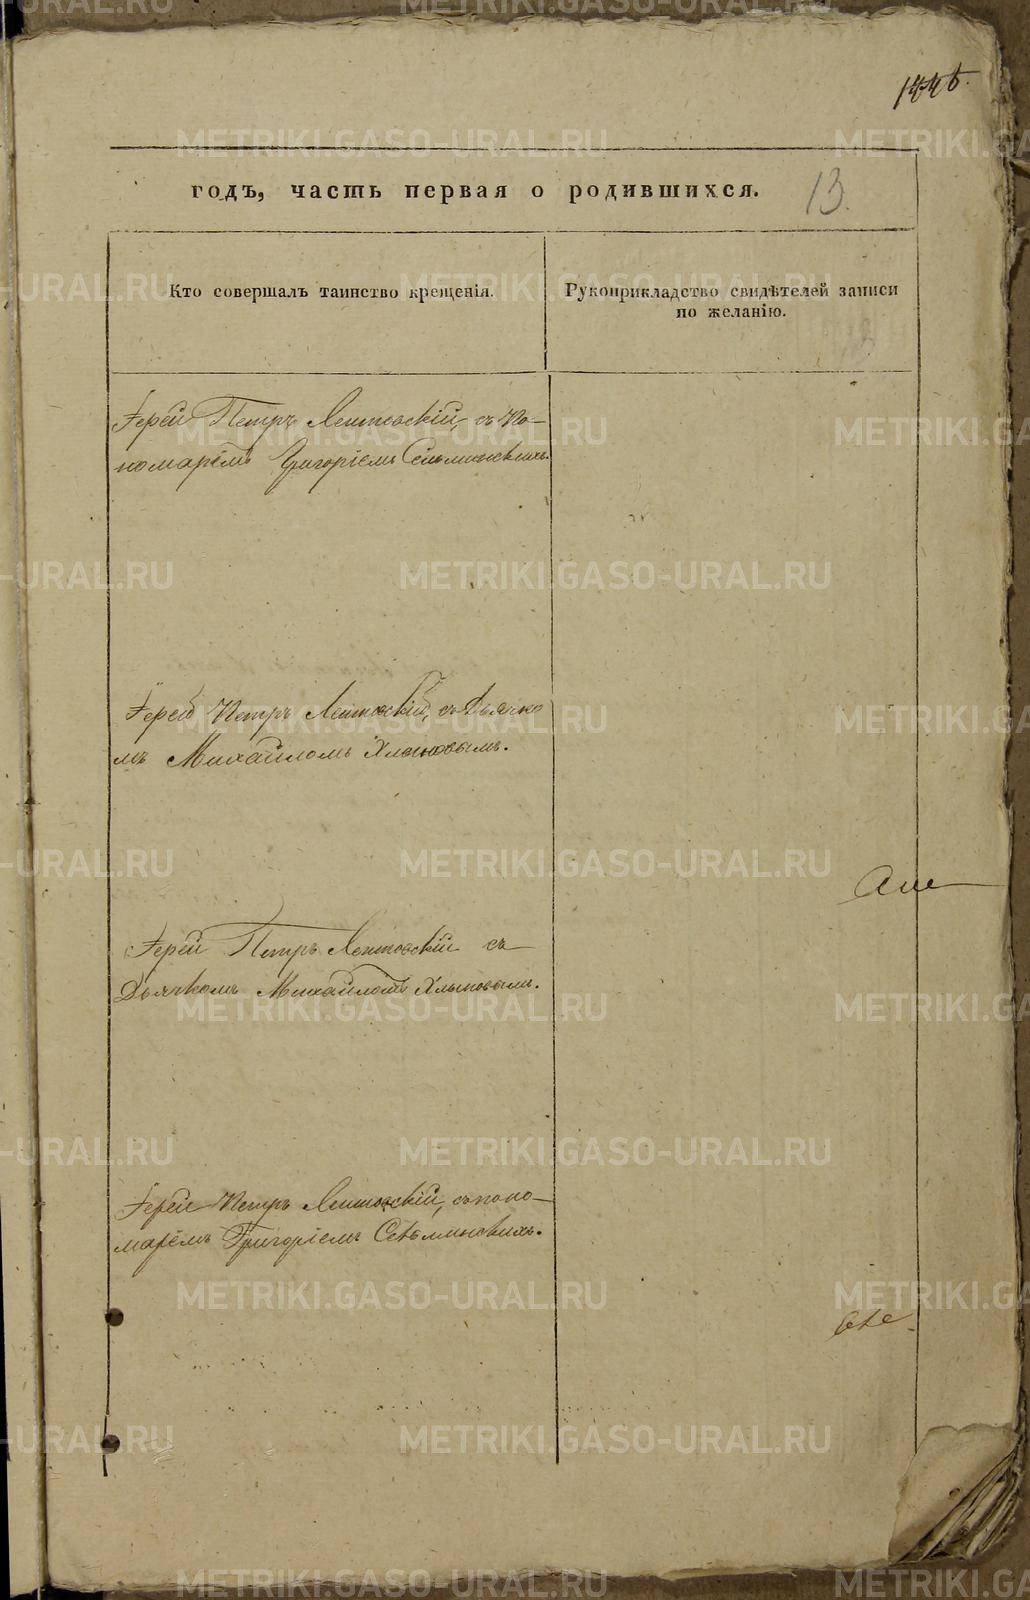 годъ, часть первая о родившихся.
13.
Кто совершалъ таинство крещенія.
Рукоприкладство свидѣтелей записи
по желанію.
Іерей Петръ Лептовскій, съ По-
номарёмъ Григоріемъ
Іерей Петръ Лептовскій, съ Дьячко
мъ Михайломъ Хлыновымъ.
Іерей Петръ Лептовскій съ
Дьячкомъ Михайломъ Хлыновымъ.
Іерей Петръ Лептовскій, съ поно-
марёмъ Григоріемъ
METRIKI.GASO-URAL.RU